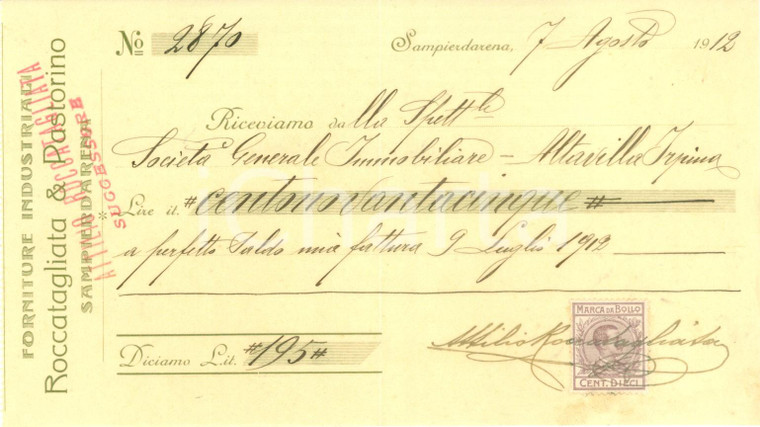 FORNITURE INDUSTRIALI
Roccatagliata & Pastorino
SAMPIERDARENA
ATTILIO ROCCATAGLIATA
SUCCESSORE
No 2870
Sampierdarena, 7 Agosto 1912
Riceviamo dalla Spett.le
Società Generale Immobiliare - Altavilla Irpina
Lire it. # centonovantacinque #
a perfetto Saldo mia fattura 9 Luglio 1912
Diciamo L.it. #195#
MARCA DA BOLLO
CENT. DIECI
Attilio Roccatagliata